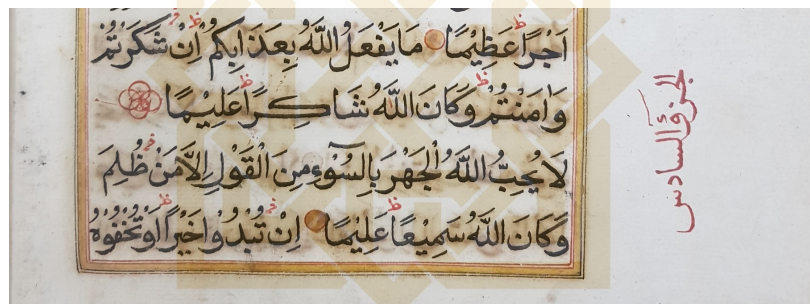 اَجْرًا عَظِيْمًا مَا يَفْعَلُ اللّٰهُ بِعَذَابِكُمْ اِنْ شَكَرْتُمْ
وَاٰمَنْتُمْ وَكَانَ اللّٰهُ شَاكِرًا عَلِيْمًا
لَا يُحِبُّ اللّٰهُ الْجَهْرَ بِالسُّوْٓءِ مِنَ الْقَوْلِ اِلَّا مَنْ ظُلِمَ
وَكَانَ اللّٰهُ سَمِيْعًا عَلِيْمًا اِنْ تُبْدُوْا خَيْرًا اَوْ تُخْفُوْهُ
الجزؤ السادس